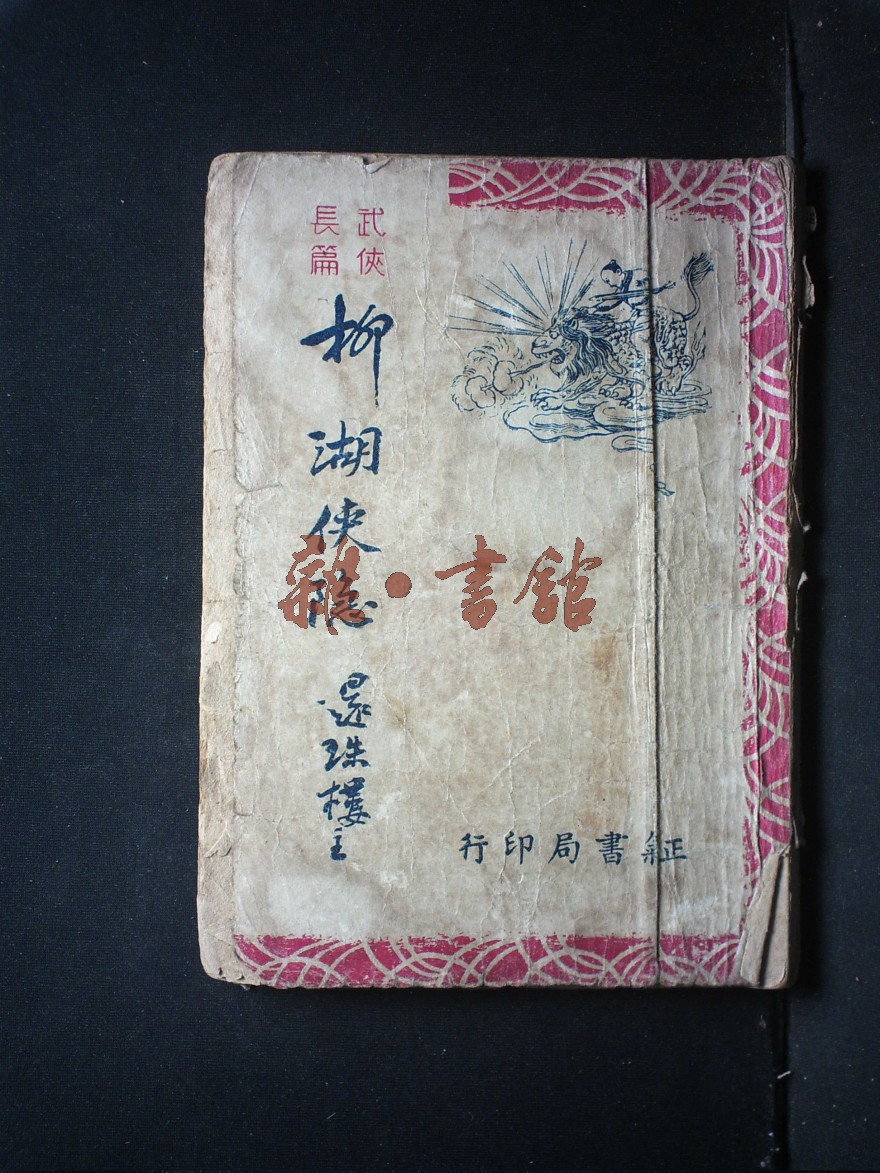 武俠
長篇
柳湖俠隱
還珠樓主
正氣書局印行
雜•書舘